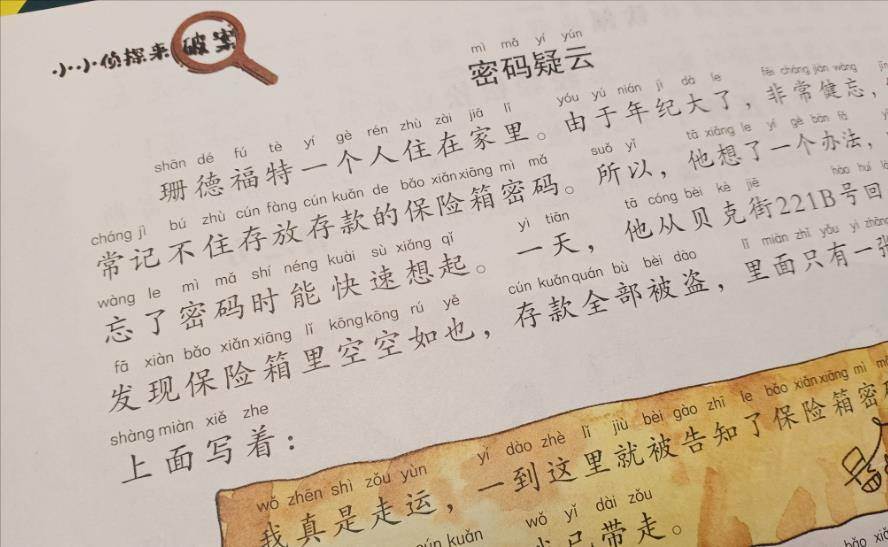 小小侦探来破案
mì mǎ yí yún
密码疑云
shān dé fú tè yí gè rén zhù zài jiā lǐ yóu yú nián jì dà le fēi cháng jiàn wàng
珊德福特一个人住在家里。由于年纪大了，非常健忘，
cháng jì bú zhù cún fàng cún kuǎn de bǎo xiǎn xiāng mì mǎ suǒ yǐ tā xiǎng le yí gè bàn fǎ
常记不住存放存款的保险箱密码。所以，他想了一个办法，
wàng le mì mǎ shí néng kuài sù xiǎng qǐ yì tiān tā cóng bèi kè jiē hào huí
忘了密码时能快速想起。一天，他从贝克街221B号回
fā xiàn bǎo xiǎn xiāng lǐ kōng kōng rú yě cún kuǎn quán bù bèi dào lǐ miàn zhǐ yǒu yì zhāng
发现保险箱里空空如也，存款全部被盗，里面只有一张
shàng miàn xiě zhe
上面写着：
wǒ zhēn shì zǒu yùn yí dào zhè lǐ jiù bèi gào zhī le bǎo xiǎn xiāng mì mǎ
我真是走运，一到这里就被告知了保险箱密
kuǎn wǒ yǐ dài zǒu
已带走。